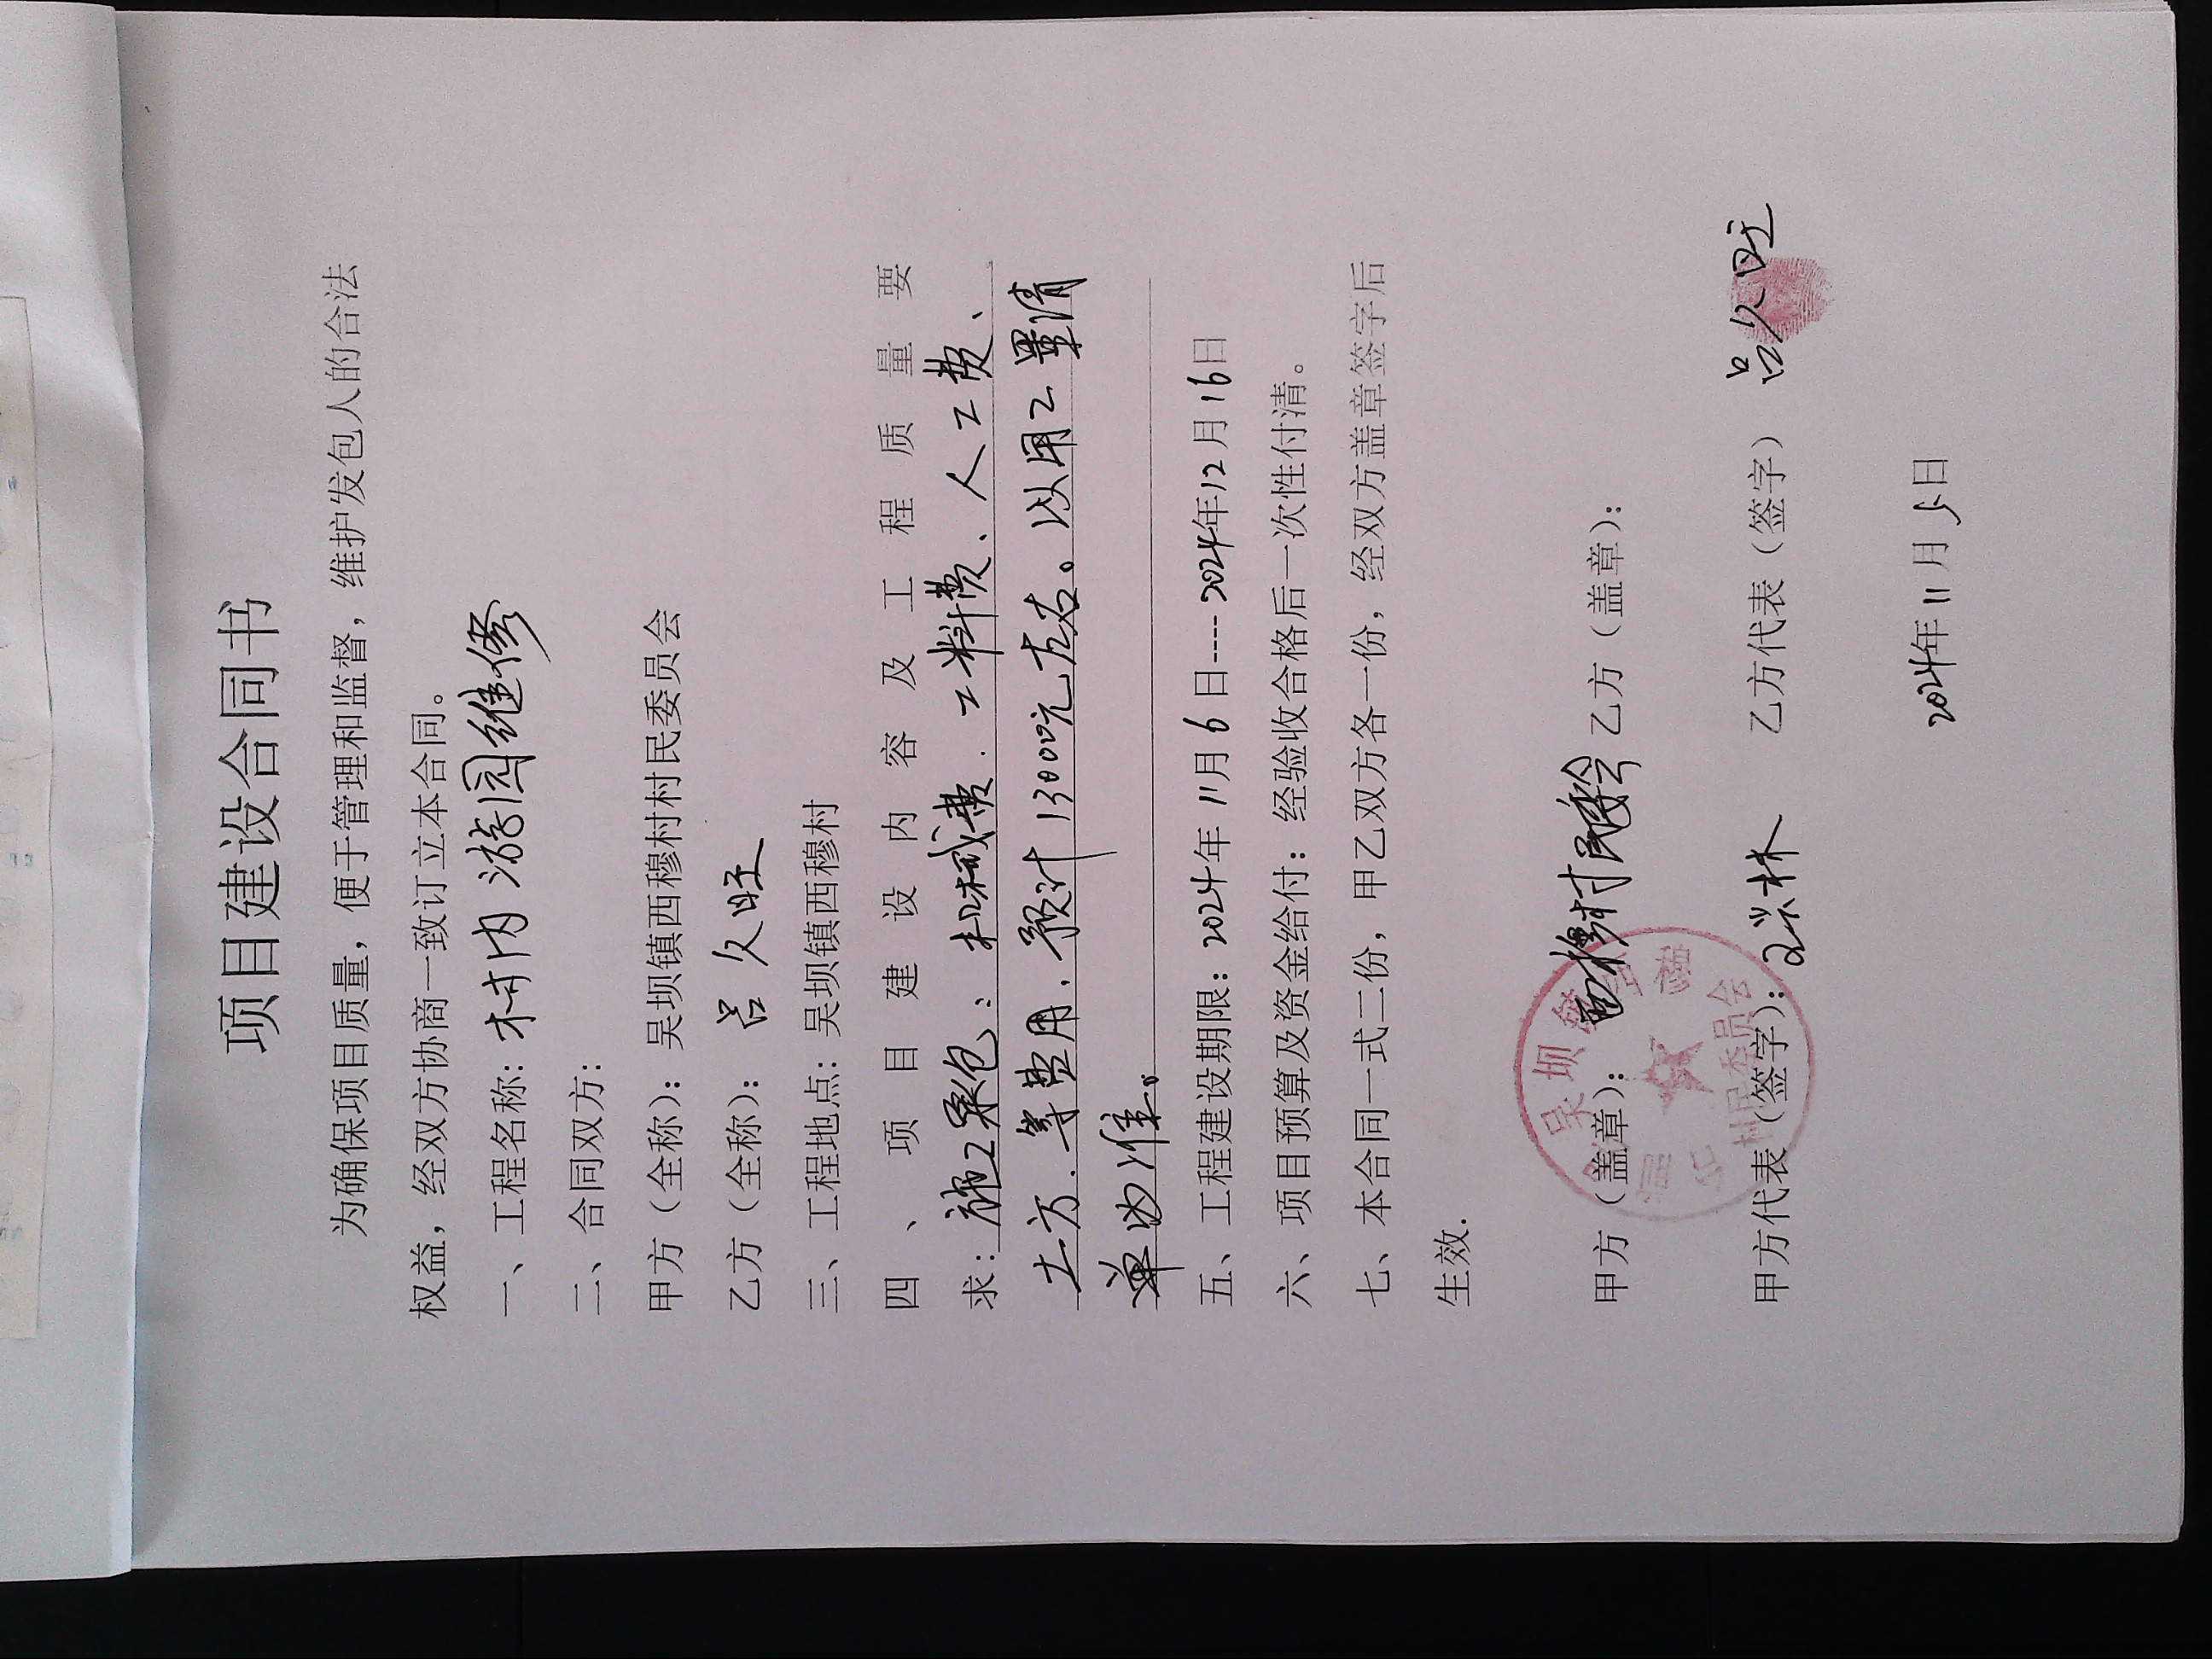 项目建设合同书
为确保项目质量，便于管理和监督，维护发包人的合法
权益，经双方协商一致订立本合同。
一、工程名称：村内游园维修
二、合同双方：
甲方（全称）：吴坝镇西穆村村民委员会
乙方（全称）：吕久旺
三、工程地点：吴坝镇西穆村
四、项目建设内容及工程质量要
求：施工承包：机械费、工料费、人工费、
土方、等费用，预计13000元左右。以用工量清
单为准。
五、工程建设期限：2024年11月6日----2024年12月16日
六、项目预算及资金给付：经验收合格后一次性付清。
七、本合同一式二份，甲乙双方各一份，经双方盖章签字后
生效.
甲方（盖章）：西穆村民委 乙方（盖章）：
吴坝镇西穆村村民委员会
甲方代表（签字）： 乙方代表（签字） 吕久旺
2024年11月5日